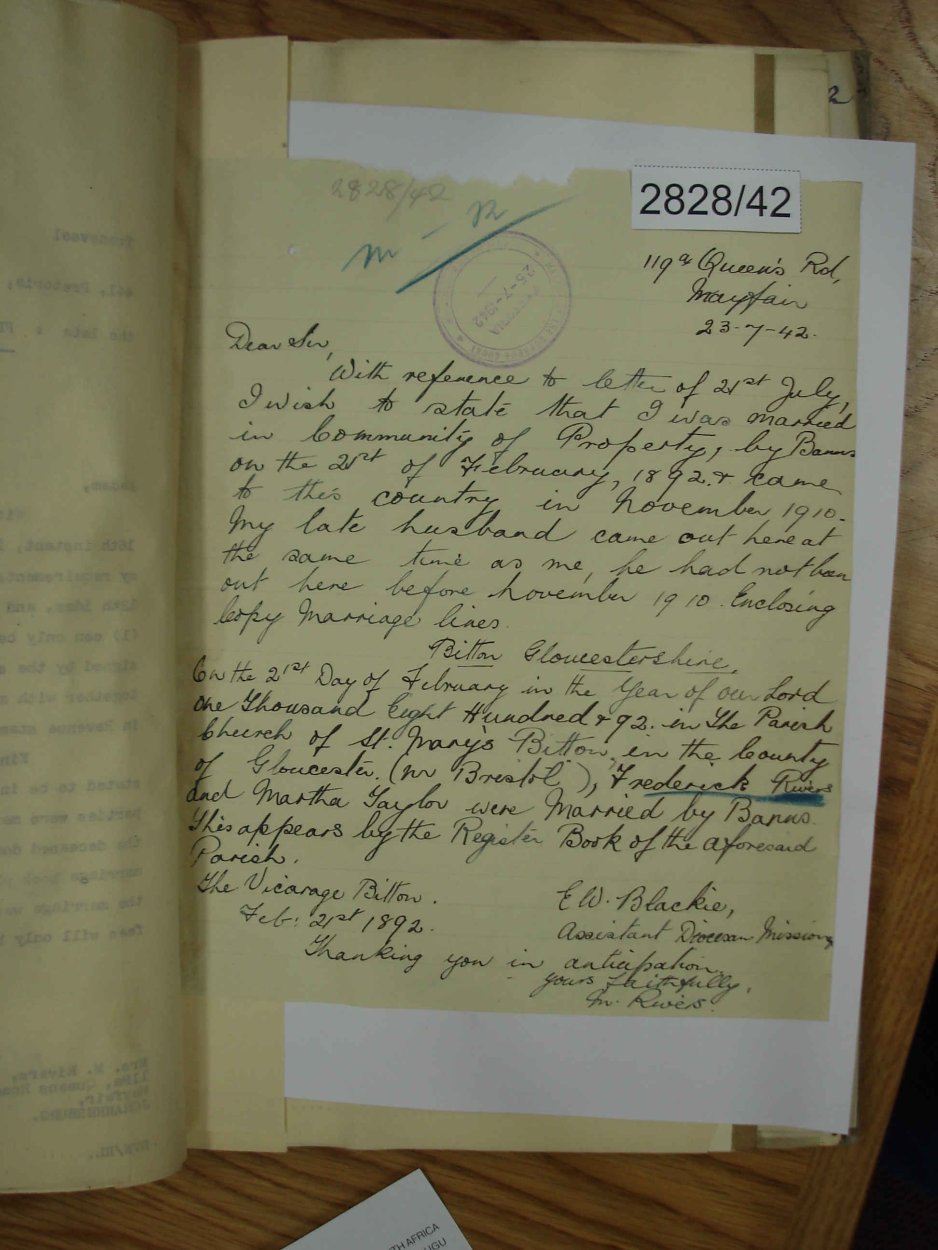 2
2828/42
2828/42
m - R
25-7-1942
PRETORIA
119a Queen's Rd,
Mayfair
23-7-42.
Dear Sir,
With reference to letter of 21st July,
I wish to state that I was married
in Community of Property, by Banns
on the 21st of February, 1892. & came
to this country in November 1910.
My late husband came out here at
the same time as me, he had not been
out here before November 1910. Enclosing
Copy Marriage lines.
Bitton Gloucestershire.
On the 21st Day of February in the Year of our Lord
One Thousand Eight Hundred & 92. in The Parish
Church of St. Mary's Bitton, in the County
of Gloucester. (nr Bristol), Frederick Rivers
and Martha Taylor were Married by Banns.
This appears by the Register Book of the aforesaid
Parish.
The Vicarage Bitton.
Feb: 21st 1892.
E W. Blackie,
Assistant Diocesan Mission
Thanking you in anticipation.
yours Faithfully,
M. Rivers.
Transvaal
Pretoria,
the late :
16th instant,
(1) can only be
signed by the
together with
in Revenue
stated to be in
parties were
the deceased
marriage
the marriage
fees will only
Mrs. M. Rivers,
119a, Queens Road
Mayfair,
JOHANNESBURG.
TH AFRICA